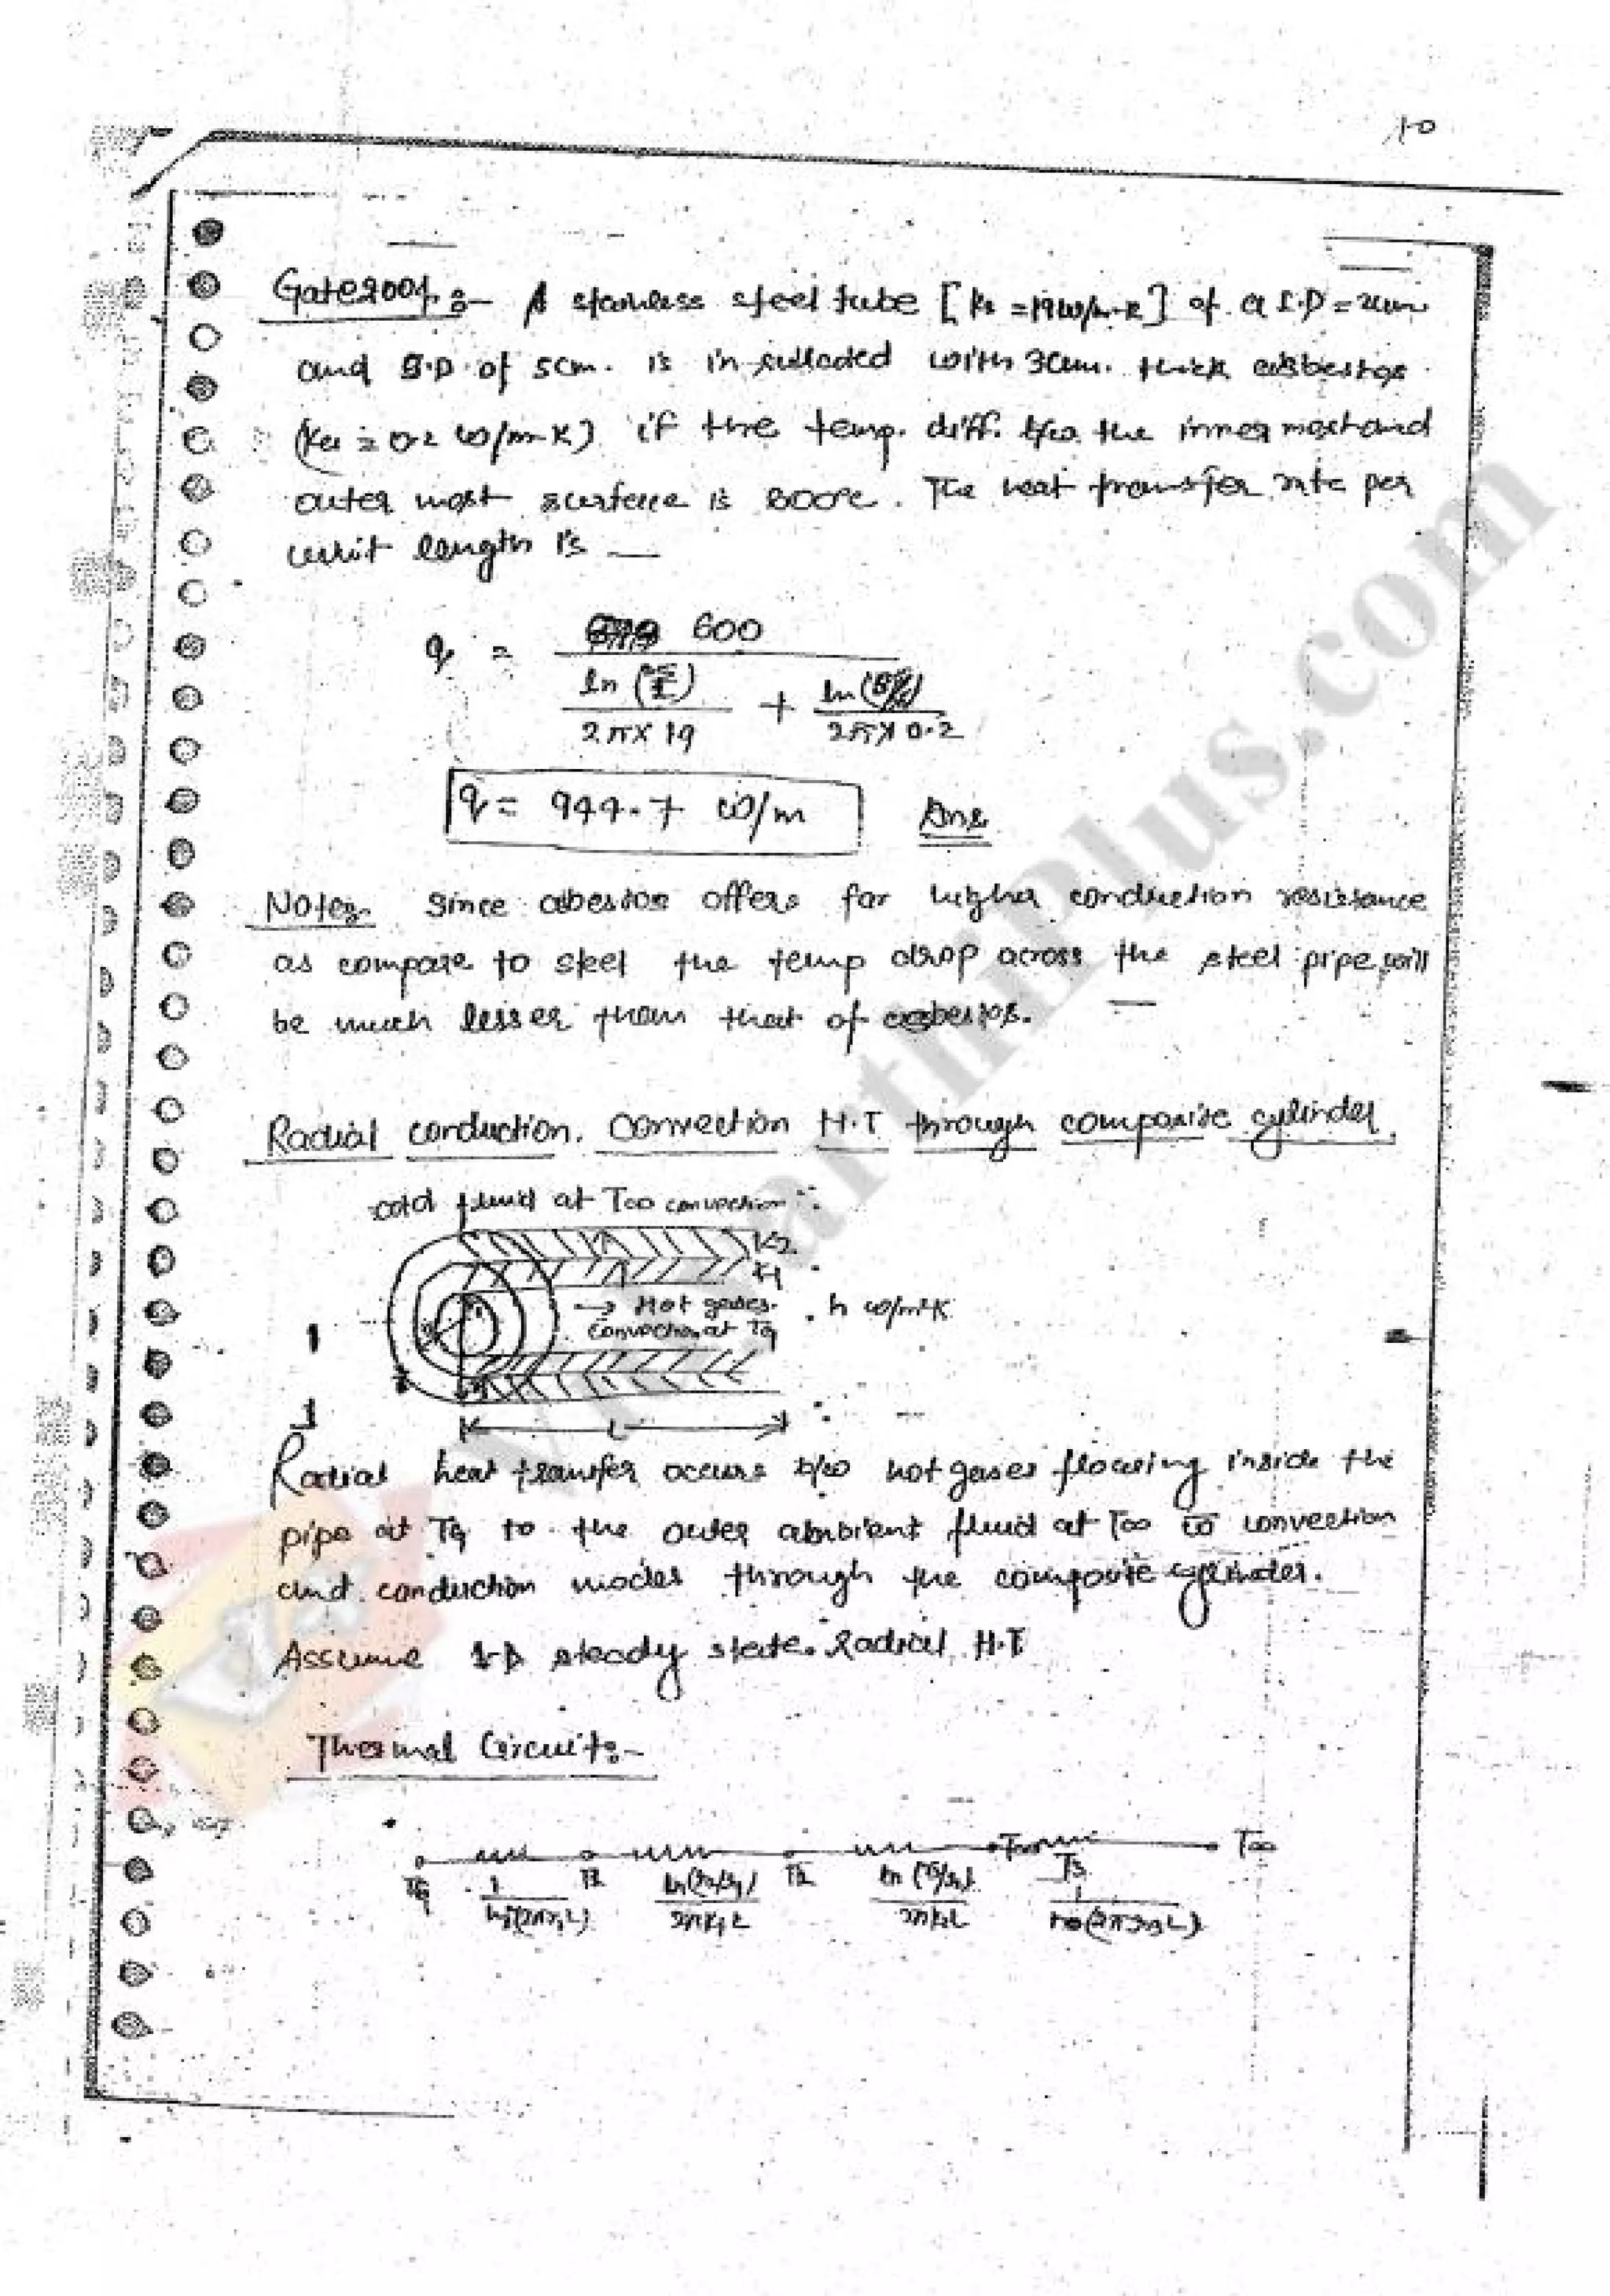 10
Gate 2004 :- A stainless steel tube [ks = 19 W/m-K] of a I.D = 2cm
and O.D. of 5cm. is insulated with 3cm. thick asbestos
(ka = 0.2 W/m-K) if the temp. diff. b/w the inner most and
outer most surface is 600°c. The heat transfer rate per
unit length is —
q = 600
ln (2.5/1) / 2π×19 + ln (5.5/2.5) / 2π×0.2
q = 944.7 W/m Ans
Note:- Since asbestos offers far higher conduction resistance
as compare to steel the temp drop across the steel pipe will
be much lesser than that of asbestos.
Radial conduction. Convection H.T through composite cylinder
cold fluid at T∞ convection
K2
K1
→ Hot gases. h W/m²K
Convection at Tg
L
Radial heat transfer occurs b/w hot gases flowing inside the
pipe at Tg to the outer ambient fluid at T∞ convection
and conduction modes through the composite cylinder.
Assume 1-D steady state Radial H.T
Thermal Circuit:-
T∞
Tg T1 T2 T3
1/hi(2πr1L) ln(r2/r1)/2πk1L ln(r3/r2)/2πk2L 1/ho(2πr3L)